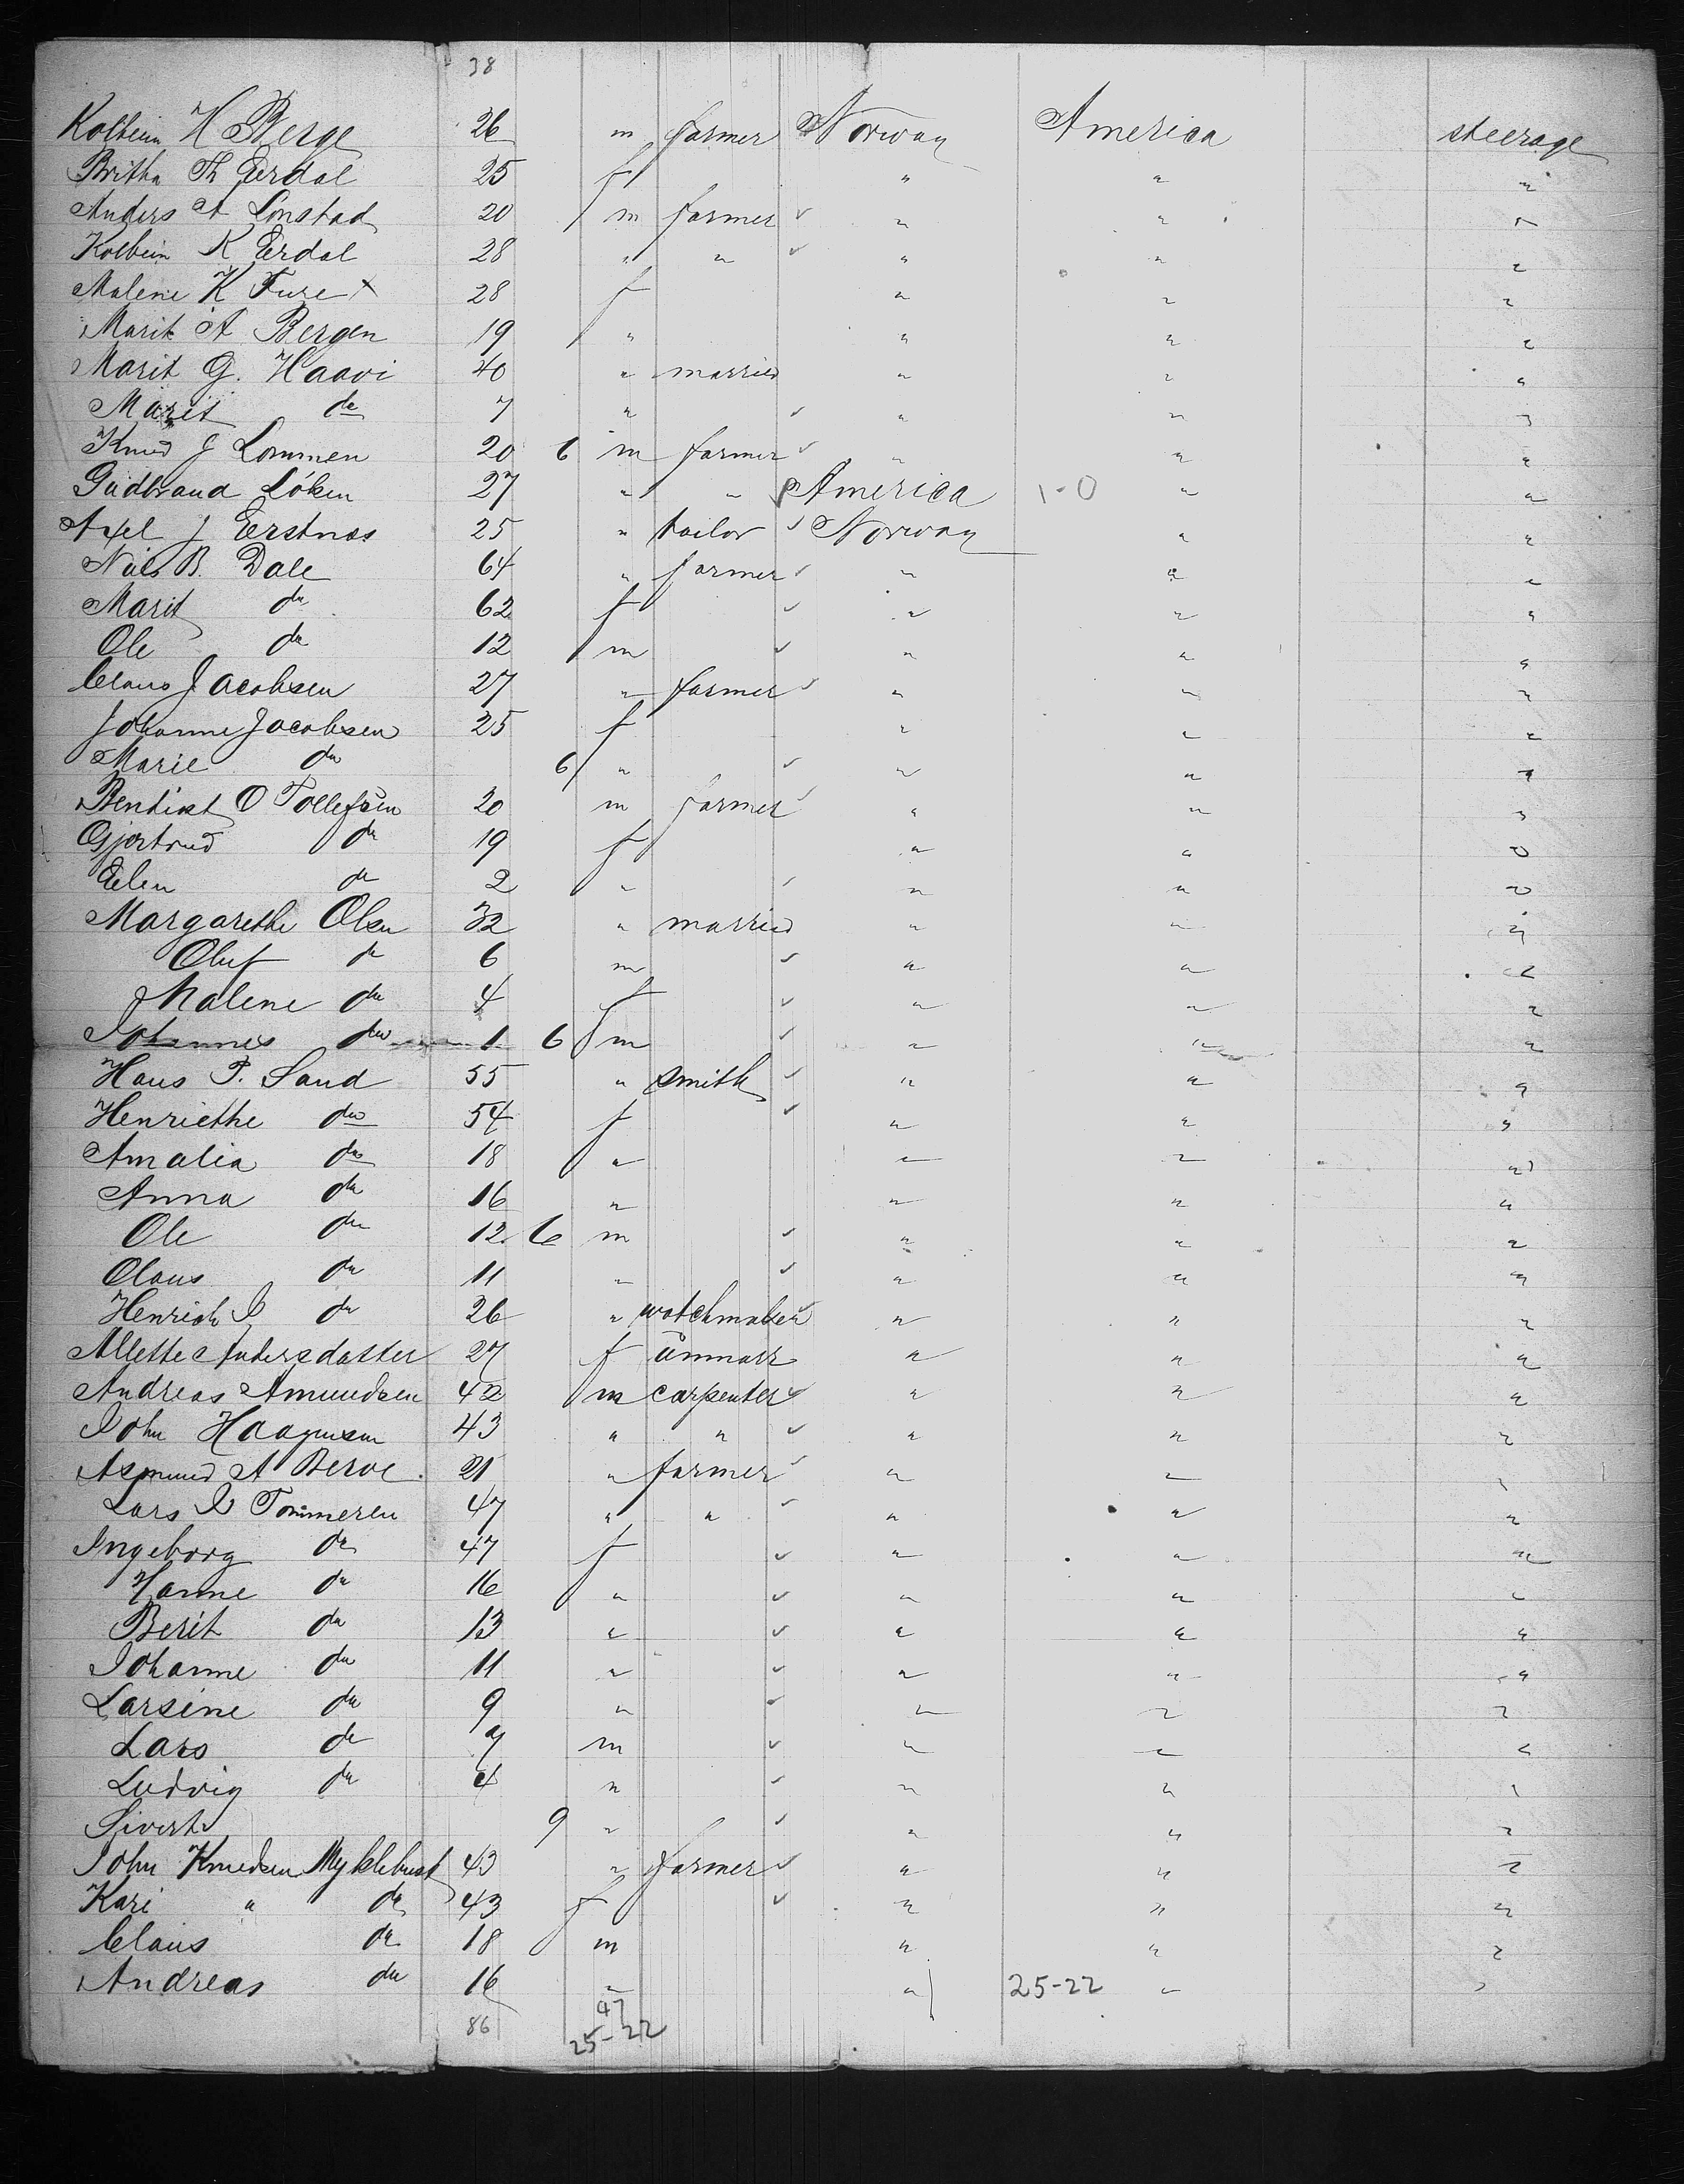 38
Kolbein H Berge 26 m farmer Norway America steerage
Britha Th Eerdal 25 f " " "
Anders A Lonstad 20 m farmer ✓ " " "
Kolbein K Eerdal 28 " " ✓ " " "
Malene K Fure x 28 f " " "
Marit A Bergen 19 " " " "
Marit G. Haavi 40 " married " " "
Marit do 7 " ✓ " " "
Knud J Lommen 20 6 m farmer ✓ " " "
Gudbrand Löken 27 " " America 1-0 " "
Axel J Eerstnos 25 " tailor ✓ Norway " "
Nils B. Dale 64 " farmer ✓ " " "
Marit do 62 f ✓ " " "
Ole do 12 m ✓ " " "
Claus Jacobsen 27 " farmer ✓ " " "
Johanne Jacobsen 25 f " " "
Marie do 6 " ✓ " " "
Bendikt O Tollefsen 20 m farmer ✓ " " "
Gjertrud do 19 f " " "
Eelen do 2 " ✓ " " "
Margarethe Olsen 32 " married " " "
Oluf do 6 m ✓ " " "
Malene do 4 f ✓ " " "
Johannes do 1 6 m ✓ " " "
Hans P. Sand 55 " smith ✓ " " "
Henriethe do 54 f ✓ " " "
Amalia do 18 " " " "
Anna do 16 " " " "
Ole do 12 6 m ✓ " " "
Olaus do 11 " ✓ " " "
Henrich J do 26 " watchmaker " " "
Allette Andersdatter 27 f unmarr " " "
Andreas Amundsen 42 m carpenter ✓ " " "
John Haagensen 43 " " ✓ " " "
Asmund A Berve 21 " farmer ✓ " " "
Lars J Tommeren 47 " " ✓ " " "
Ingeborg do 47 f ✓ " " "
Hanne do 16 " ✓ " " "
Berit do 13 " ✓ " " "
Johanne do 11 " ✓ " " "
Larsine do 9 " ✓ " " "
Lars do 7 m ✓ " " "
Ludvig do 4 " ✓ " " "
Sivert 9 " ✓ " " "
John Knudsen Myklebust 43 " farmer ✓ " " "
Kari " do 43 f ✓ " " "
Claus do 18 m " " "
Andreas do 16 " " 25-22 " "
86 47
25-22